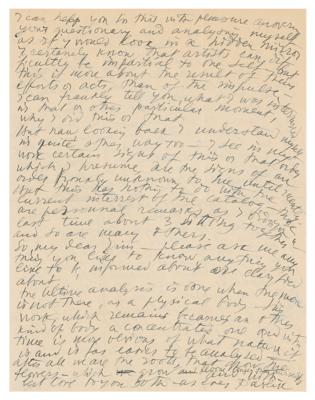 I can help you in this with pleasure answering
your questionary and analysing myself
as if I would look in a hidden mirror
I certainly know that artists can
to be impartial to one self. But
this is more about the result of their
efforts or acts, than of the impulse
I can frankly tell you what I was interested
in that or other particular moment
why I did this or that
But now looking back I understand myself
in quite other way too I see in my
work certain signs of this or that
which I presume are the signs of an
only
But this has nothing to do with the
current interest of the catalogue
are personal remarks as I
last time about sitting together
and so many others
So, my dear Jim please ask me any
thing you like to know anything you
like to be informed about or clarified
about.
The ultimate analysis is done when the man
is not there, as a physical body the
work, which remains becomes an other
kind of body a concentrated one and in
time is more obvious of what nature it
is and is far easier to be analysed
after all we are the roots that
flowers which grow
best love to you both as ever